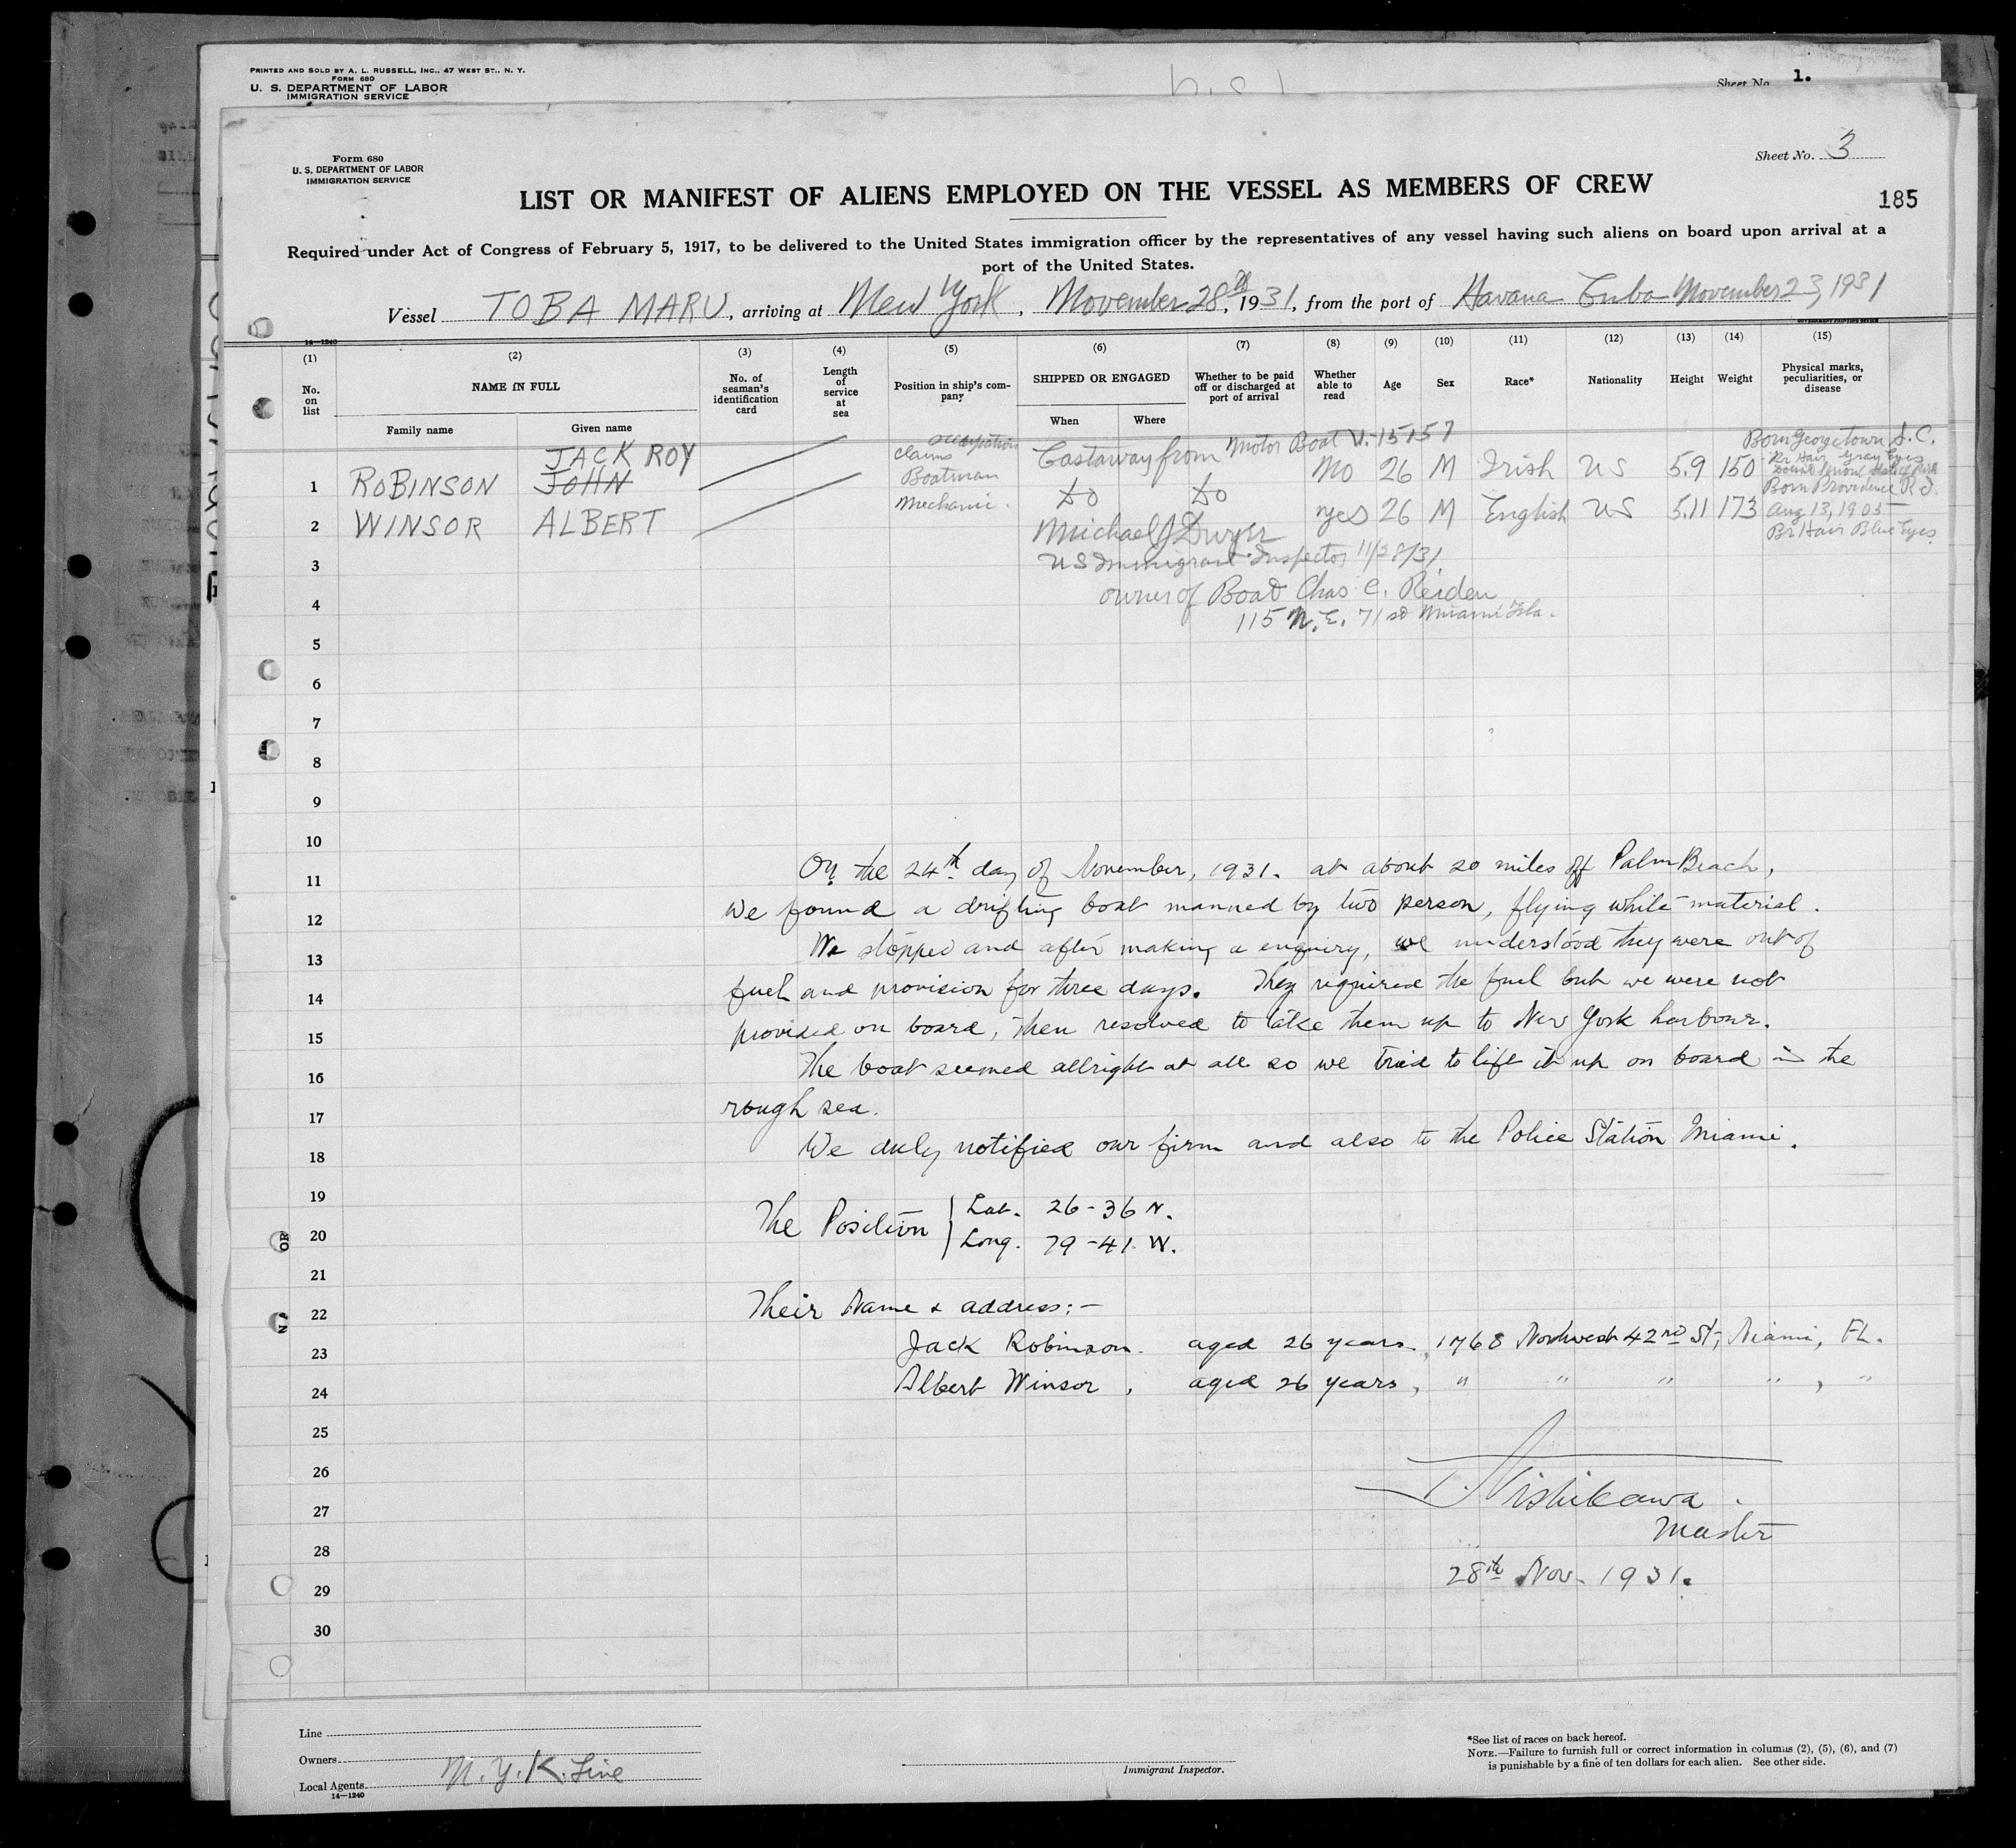 PRINTED AND SOLD BY A. L. RUSSELL, INC., 47 WEST ST., N. Y.
FORM 680
U. S. DEPARTMENT OF LABOR
IMMIGRATION SERVICE
Sheet No. 1.
Form 680
U. S. DEPARTMENT OF LABOR
IMMIGRATION SERVICE
Sheet No. 3
LIST OR MANIFEST OF ALIENS EMPLOYED ON THE VESSEL AS MEMBERS OF CREW
185
Required under Act of Congress of February 5, 1917, to be delivered to the United States immigration officer by the representatives of any vessel having such aliens on board upon arrival at a
port of the United States.
Vessel TOBA MARU, arriving at New York, November 28th, 1931, from the port of Havana Cuba November 23, 1931
14—1240
(1) (2) (3) (4) (5) (6) (7) (8) (9) (10) (11) (12) (13) (14) (15)
No. on list
NAME IN FULL
Family name
Given name
No. of seaman's identification card
Length of service at sea
Position in ship's company
SHIPPED OR ENGAGED
When
Where
Whether to be paid off or discharged at port of arrival
Whether able to read
Age
Sex
Race*
Nationality
Height
Weight
Physical marks, peculiarities, or disease
claims occupation
Castaway from Motor Boat V.-15157
Born Georgetown S.C.
JACK ROY
Br Hair Gray Eyes
1 ROBINSON JOHN Boatman No 26 M Irish US 5.9 150
Do Do
Mechanic.
Born Providence R.I.
2 WINSOR ALBERT yes 26 M English US 5.11 173 Aug 13, 1905
Br Hair Blue Eyes
Michael J Dwyer
3 US Immigrant Inspector 11/28/31
4 owner of Boat Chas. C. Reiden
115 N.E. 71 st Miami Fla.
5
6
7
8
9
10
11 On the 24th day of November, 1931. at about 20 miles off Palm Beach,
12 we found a drifting boat manned by two person, flying white material.
13 We stopped and after making a enquiry, we understood they were out of
14 fuel and provision for three days. They required the fuel but we were not
15 provided on board, then resolved to take them up to New York harbour.
16 The boat seemed allright at all so we tried to lift it up on board in the
17 rough sea.
18 We duly notified our firm and also to the Police Station Miami.
19 The Position Lat. 26-36 N.
20 Long. 79-41 W.
21
22 Their Name & address:-
23 Jack Robinson. aged 26 years, 1768 Northwest 42nd St, Miami, FL.
24 Albert Winsor, aged 26 years, " " " " , "
25
26
27 T. Nishikawa.
28 Master
29 28th Nov. 1931.
30
Line
Owners
Local Agents N.Y.K. Line
14—1240
Immigrant Inspector.
*See list of races on back hereof.
NOTE.—Failure to furnish full or correct information in columns (2), (5), (6), and (7)
is punishable by a fine of ten dollars for each alien. See other side.